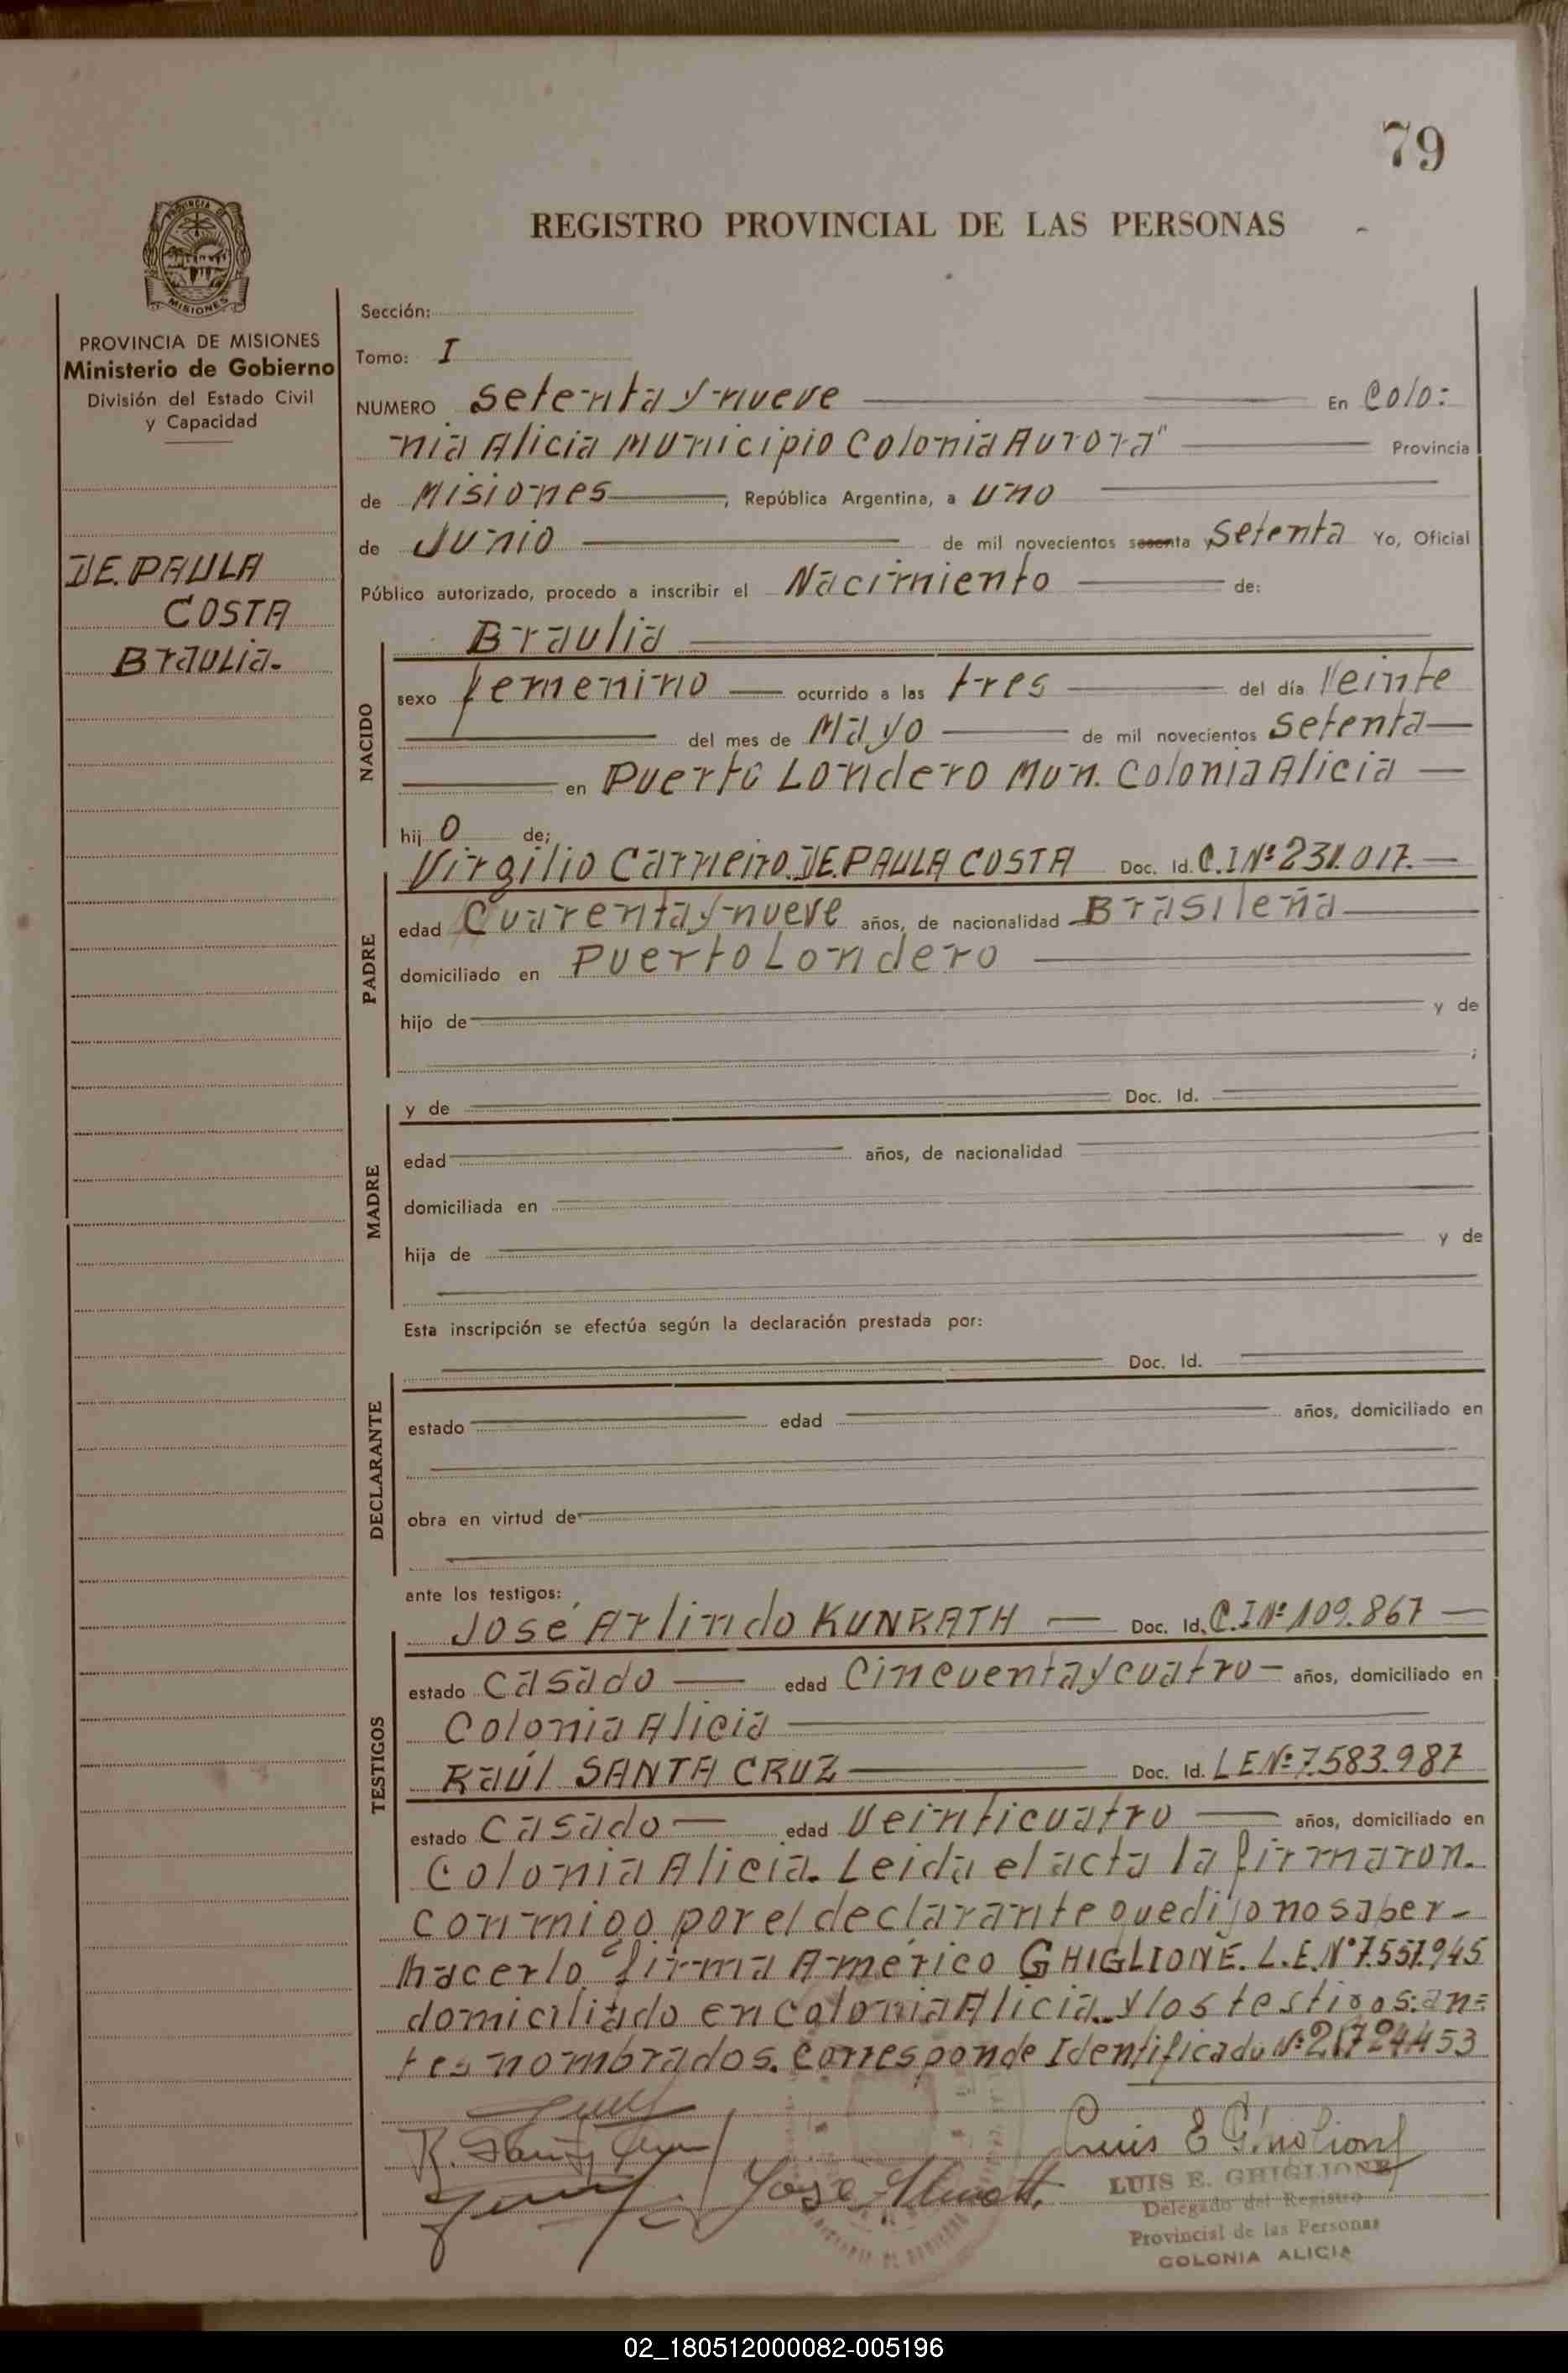 79
REGISTRO PROVINCIAL DE LAS PERSONAS
PROVINCIA DE MISIONES
Ministerio de Gobierno
División del Estado Civil
y Capacidad
DE.PAULA
COSTA
Braulia.
Sección:
Tomo: I
NUMERO setenta y nueve En Colo:
nia Alicia Municipio Colonia Aurora" Provincia
de Misiones, República Argentina, a uno
de Junio de mil novecientos sesenta y Setenta Yo, Oficial
Público autorizado, procedo a inscribir el Nacimiento de:
NACIDO
Braulia
sexo femenino ocurrido a las tres del día Veinte
del mes de Mayo de mil novecientos setenta
en Puerto Londero Mun. Colonia Alicia
hij o de;
PADRE
Virgilio Carneiro.DE.PAULA COSTA Doc. Id. C.I Nº 231.017.
edad Cuarenta y nueve años, de nacionalidad Brasileña
domiciliado en Puerto Londero
hijo de y de
;
MADRE
y de Doc. Id.
edad años, de nacionalidad
domiciliada en
hija de y de
Esta inscripción se efectúa según la declaración prestada por:
DECLARANTE
Doc. Id.
estado edad años, domiciliado en
obra en virtud de
ante los testigos:
TESTIGOS
José Arlindo KUNRATH Doc. Id. C.I Nº 109.867
estado casado edad Cincuenta y cuatro años, domiciliado en
Colonia Alicia
Raúl SANTA CRUZ Doc. Id. L E Nº 7.583.987
estado casado edad Veinticuatro años, domiciliado en
Colonia Alicia. Leida el acta la firmaron.
conmigo por el declarante que dijo no saber-
hacerlo firma Américo GHIGLIONE. L.E.Nº 7.557.945
domiciliado en Colonia Alicia y los testigos:an=
tes nombrados. Corresponde Identificado Nº
LUIS E. GHIGLIONE
Delegado del Registro
Provincial de las Personas
COLONIA ALICIA
02_180512000082-005196